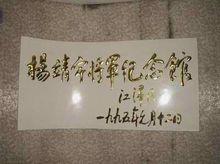 楊靖宇将軍纪念館
江泽民
一九九五年九月十六日